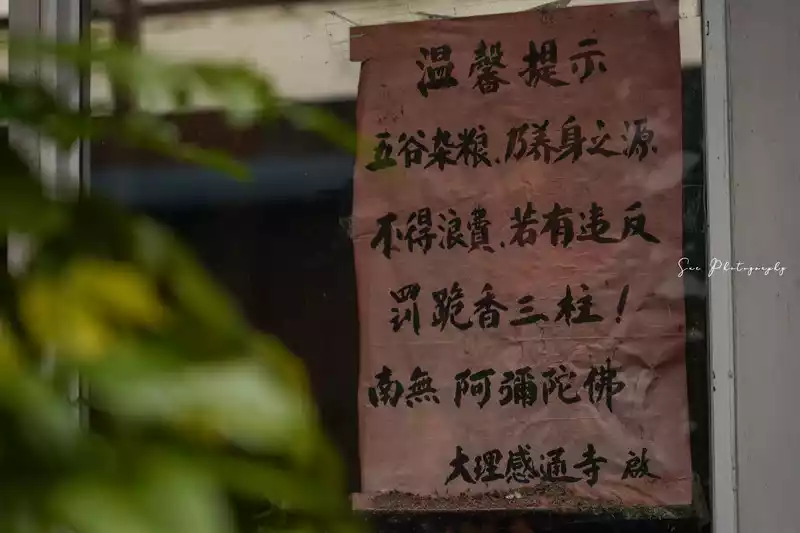 温馨提示
五谷杂粮、乃养身之源
不得浪費、若有违反
罚跪香三柱！
南無阿彌陀佛
大理感通寺 啟
See Photography